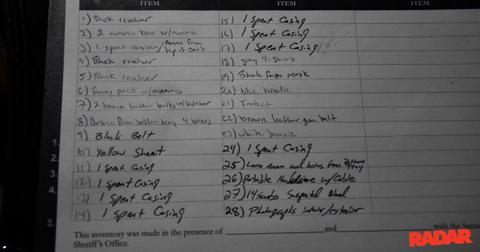 ITEM ITEM ITEM
1) Black revolver
2) 2 ammo box w/ammo
3) 1 spent casing / Ammo from
4) Black revolver
5) Black revolver
6) fanny pack w/ammo
7) 2 brown leather belts w/holster
8) from
9) Black Belt
10) Yellow Sheet
11) 1 Spent Casing
12) 1 Spent Casing
13) 1 Spent Casing
14) 1 Spent Casing
15) 1 Spent Casing
16) 1 Spent Casing
17) 1 Spent Casing
18) gray T-Shirt
19) Black face mask
20) blue hoodie
21)
22) brown leather gun belt
23) white
24) 1 Spent Casing
25) Loose ammo and
26) Portable Harddrive w/ Cable
27) 14 swabs Suspected blood
28) Photographs interior/exterior
This inventory was made in the presence of and
Sheriff's Office.
RADAR